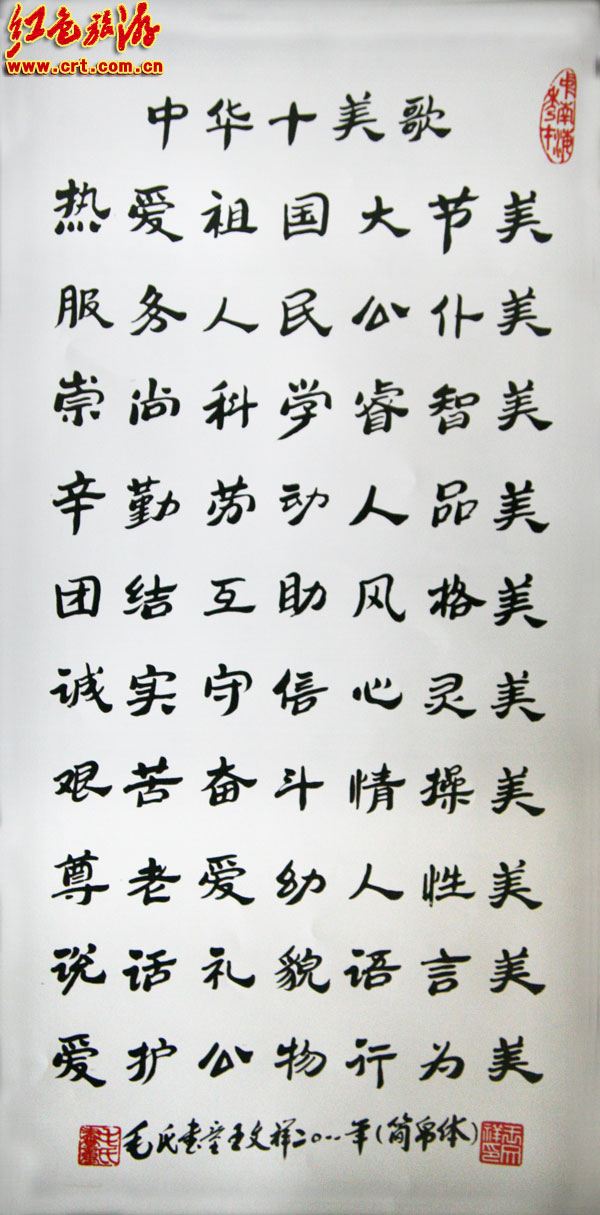 红色旅游
www.crt.com.cn
中华十美歌
热爱祖国大节美
服务人民公仆美
崇尚科学睿智美
辛勤劳动人品美
团结互助风格美
诚实守信心灵美
艰苦奋斗情操美
尊老爱幼人性美
说话礼貌语言美
爱护公物行为美
毛氏书童王文祥二〇一一年(简帛体)